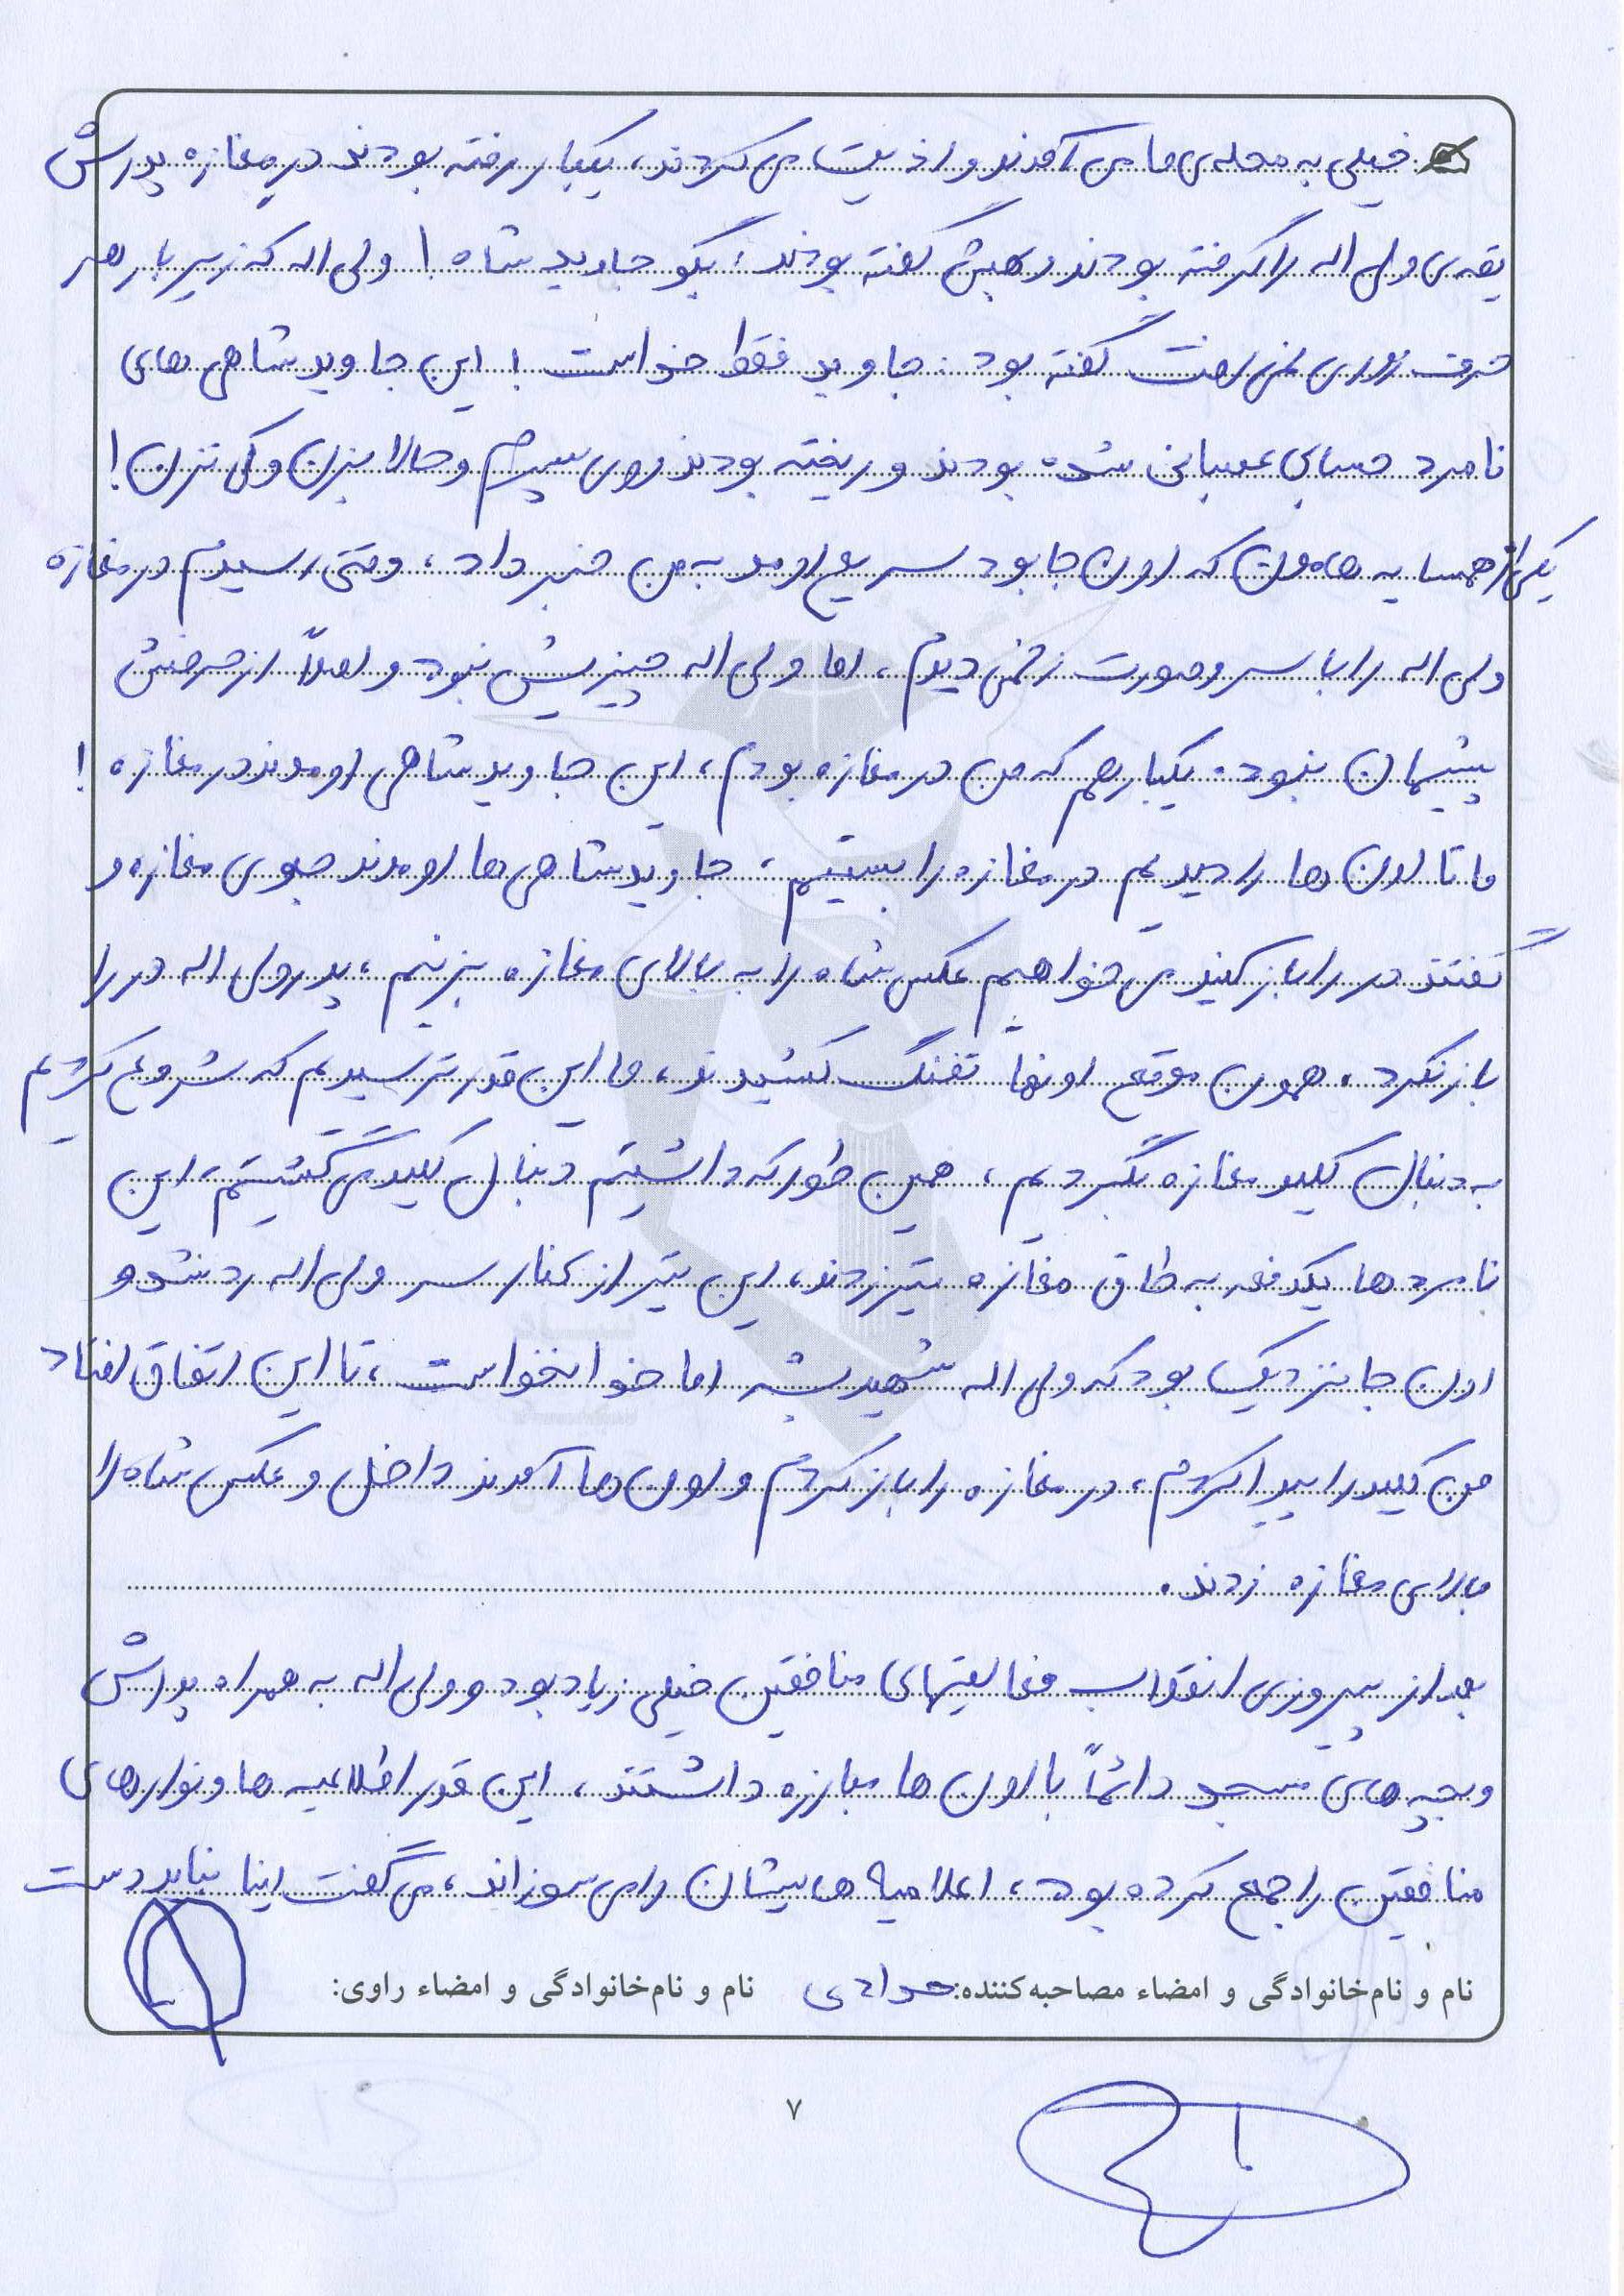 خیلی به محله‌ی ما می آمدند و اذیت می کردند، یکبار رفته بودند در مغازه پدرش
یقه‌ی ولی اله را گرفته بودند و بهش گفته بودند: بگو جاوید شاه! ولی اله که زیر بار هر
حرف زوری نمی رفت گفته بود: جاوید فقط خداست! این جاوید شاهی های
نامرد حسابی عصبانی شده بودند و ریخته بودند روی سرم و حالا بزن و کی نزن!
یکی از همسایه هامون که اون جا بود سریع اومد به من خبر داد، وقتی رسیدم در مغازه
ولی اله را با سر و صورت زخمی دیدم، اما ولی اله چیزیش نبود و اصلاً از حرفش
پشیمان نبود. یکبار هم که من در مغازه بودم، این جاوید شاهی اومدند در مغازه!
ما تا اون ها را دیدیم در مغازه را بستیم، جاوید شاهی ها اومدند جلوی مغازه و
گفتند در را باز کنید می خواهیم عکس شاه را به بالای مغازه بزنیم، پدر ولی اله در را
باز نکرد. همون موقع اونها تفنگ کشیدند، ما این قدر ترسیدیم که شروع کردیم
به دنبال کلید مغازه بگردیم، همین طور که داشتیم دنبال کلید می گشتیم، این
نامرد ها یکدفعه به طاق مغازه تیر زدند، این تیر از کنار سر ولی اله رد شد و
اون جا نزدیک بود که ولی اله شهید بشه اما خدا نخواست، تا این اتفاق افتاد
من کلید را پیدا کردم، در مغازه را باز کردم و اون ها آمدند داخل و عکس شاه را
بالای مغازه زدند.
بعد از پیروزی انقلاب فعالیتهای منافقین خیلی زیاد بود و ولی اله به همراه پدرش
و بچه های مسجد دائماً با اون ها مبارزه داشتند، این قدر اطلاعیه ها و نوارهای
منافقین را جمع کرده بود، اعلامیه هایشان را می سوزاند، می گفت اینا نباید دست
نام و نام‌خانوادگی و امضاء مصاحبه‌کننده: نام و نام‌خانوادگی و امضاء راوی:
۷